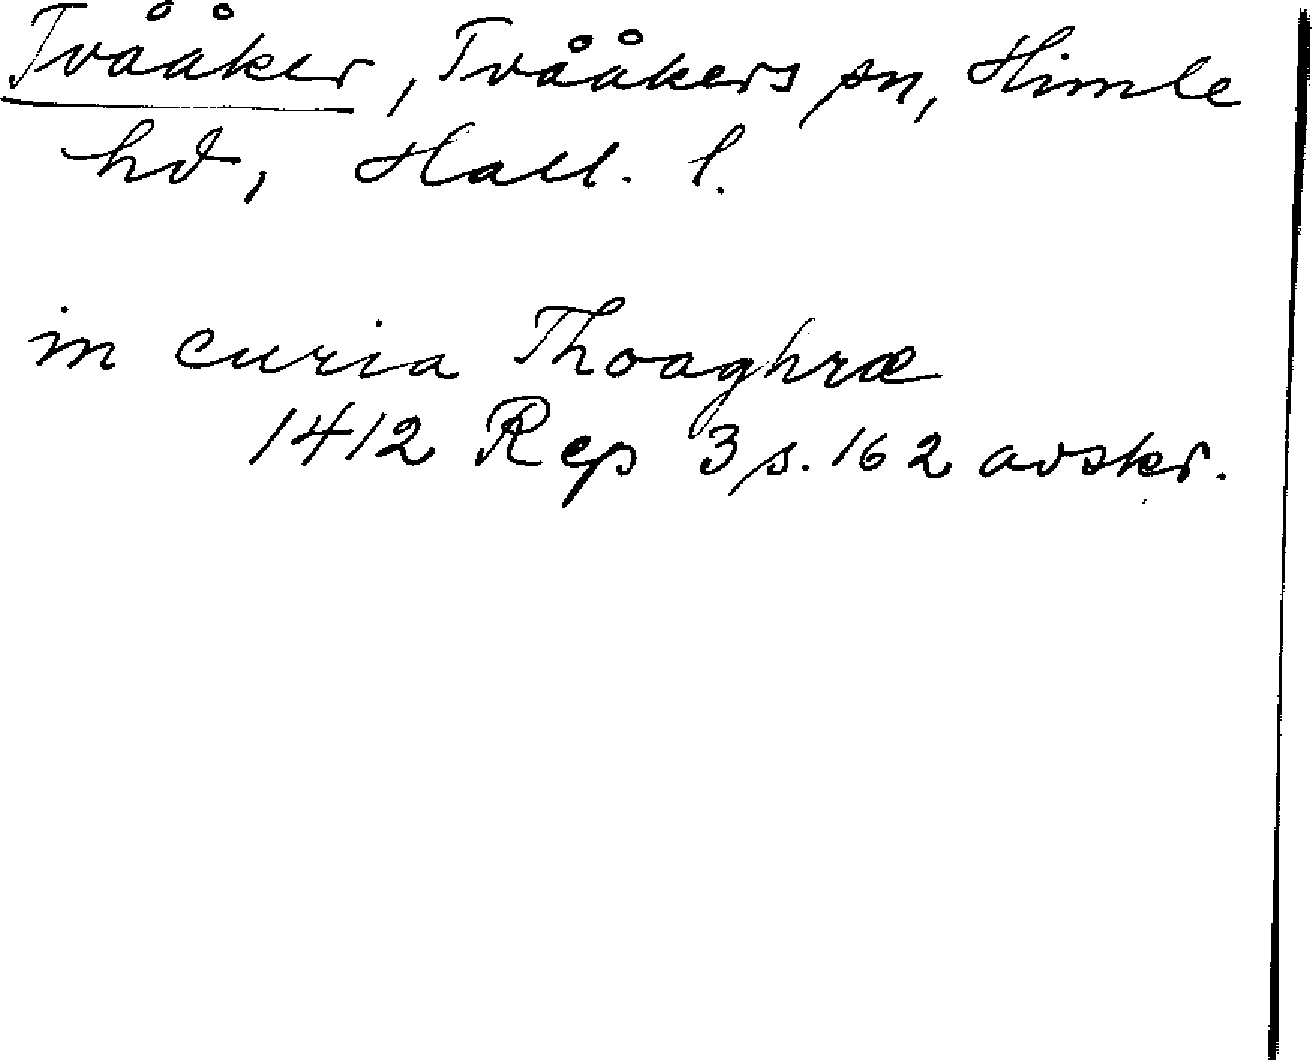 Tvååker, Tvååkers sn, Himle
hd, Hall. l.
in curia Thoaghræ
1412 Rep 3 s. 162 avskr.